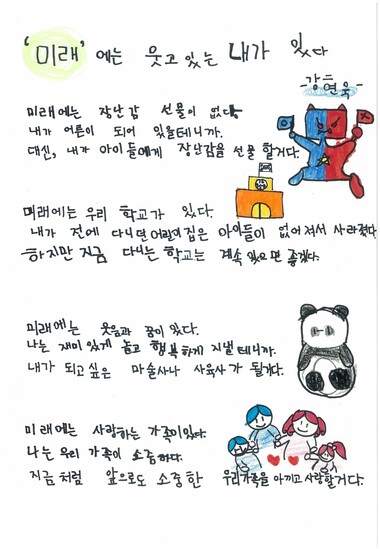 '미래'에는 웃고 있는 내가 있다
-강연욱-
미래에는 장난감 선물이 없다
내가 어른이 되어 있을테니까.
대신, 내가 아이들에게 장난감을 선물 할거다.
미래에는 우리 학교가 있다.
내가 전에 다니던 어린이집은 아이들이 없어져서 사라졌다
하지만 지금 다니는 학교는 계속 있으면 좋겠다.
미래에는 웃음과 꿈이 있다.
나는 재미있게 놀고 행복하게 지낼테니까.
내가 되고싶은 마술사나 사육사가 될거다.
미래에는 사랑하는 가족이있다.
나는 우리 가족이 소중하다.
지금처럼 앞으로도 소중한 우리가족을 아끼고 사랑할거다.